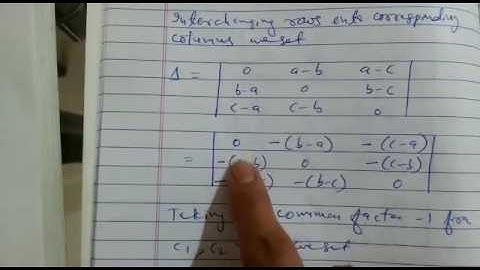 Interchanging rows into corresponding
columns we get
Δ = | 0 a-b a-c |
| b-a 0 b-c |
| c-a c-b 0 |
= | 0 -(b-a) -(c-a) |
| -( b) 0 -(c-b) |
| -(b-c) 0 |
Taking common factor -1 from
C₁, C₂ we get